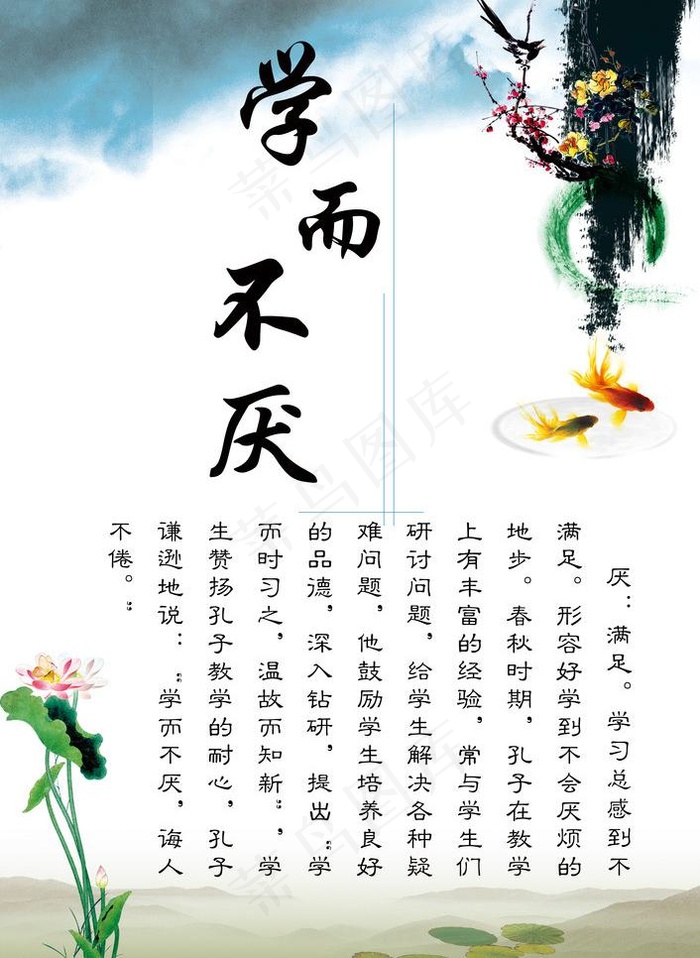 学而不厌
厌：满足。学习总感到不
满足。形容好学到不会厌烦的
地步。春秋时期，孔子在教学
上有丰富的经验，常与学生们
研讨问题，给学生解决各种疑
难问题，他鼓励学生培养良好
的品德，深入钻研，提出“学
而时习之，温故而知新”，学
生赞扬孔子教学的耐心，孔子
谦逊地说：“学而不厌，诲人
不倦。”
菜鸟图库
菜鸟图库
菜鸟图库
菜鸟图库